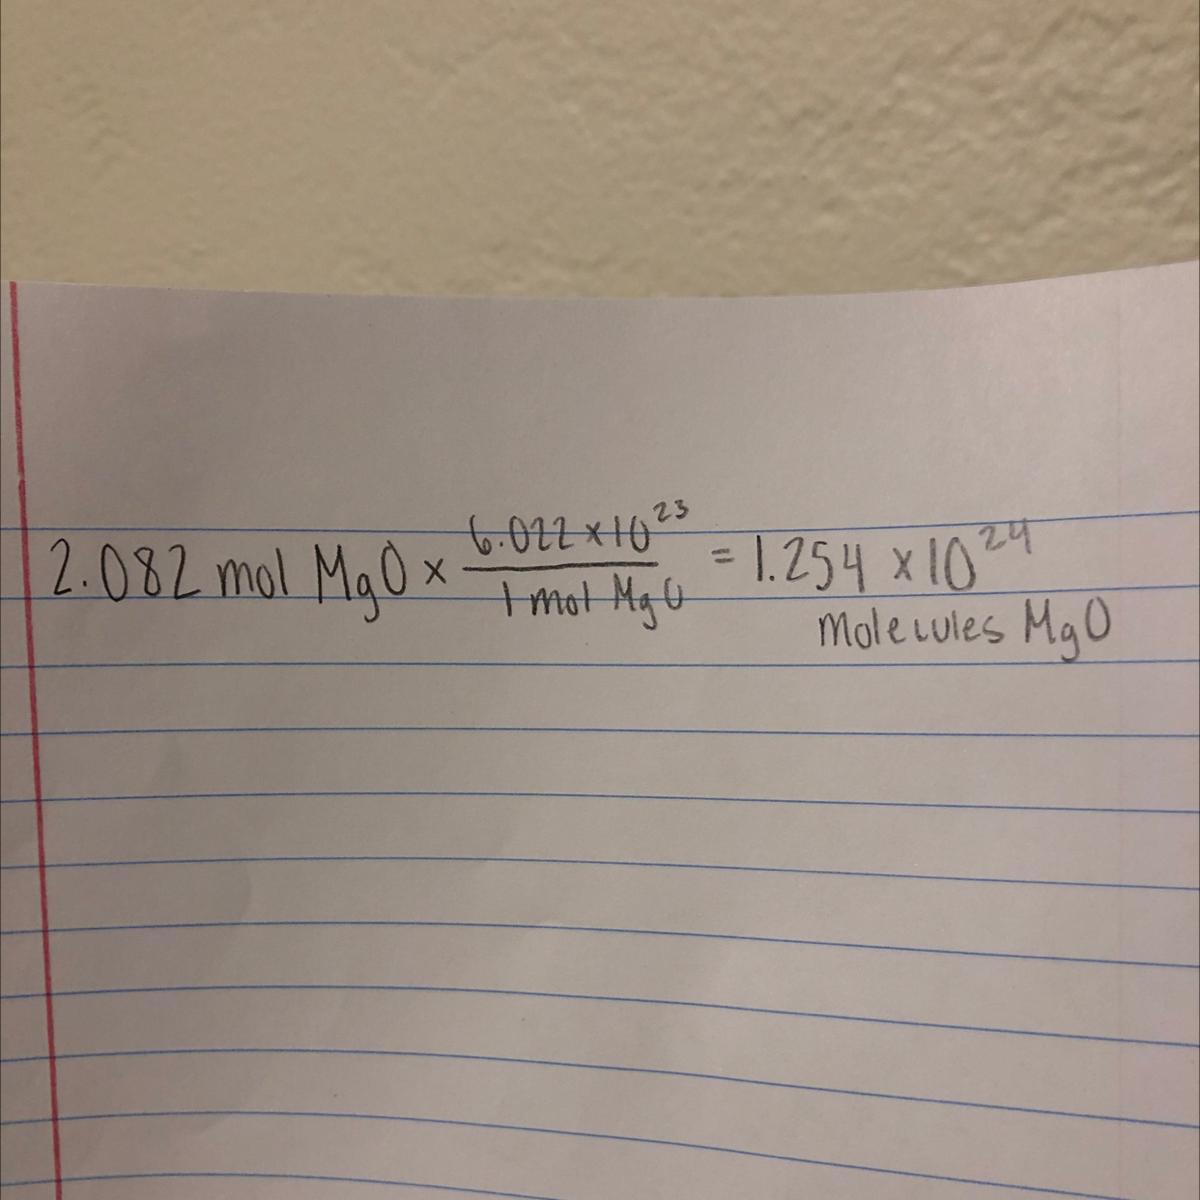 2.082 mol MgO × 6.022 × 10²³ / 1 mol MgO = 1.254 × 10²⁴
molecules MgO